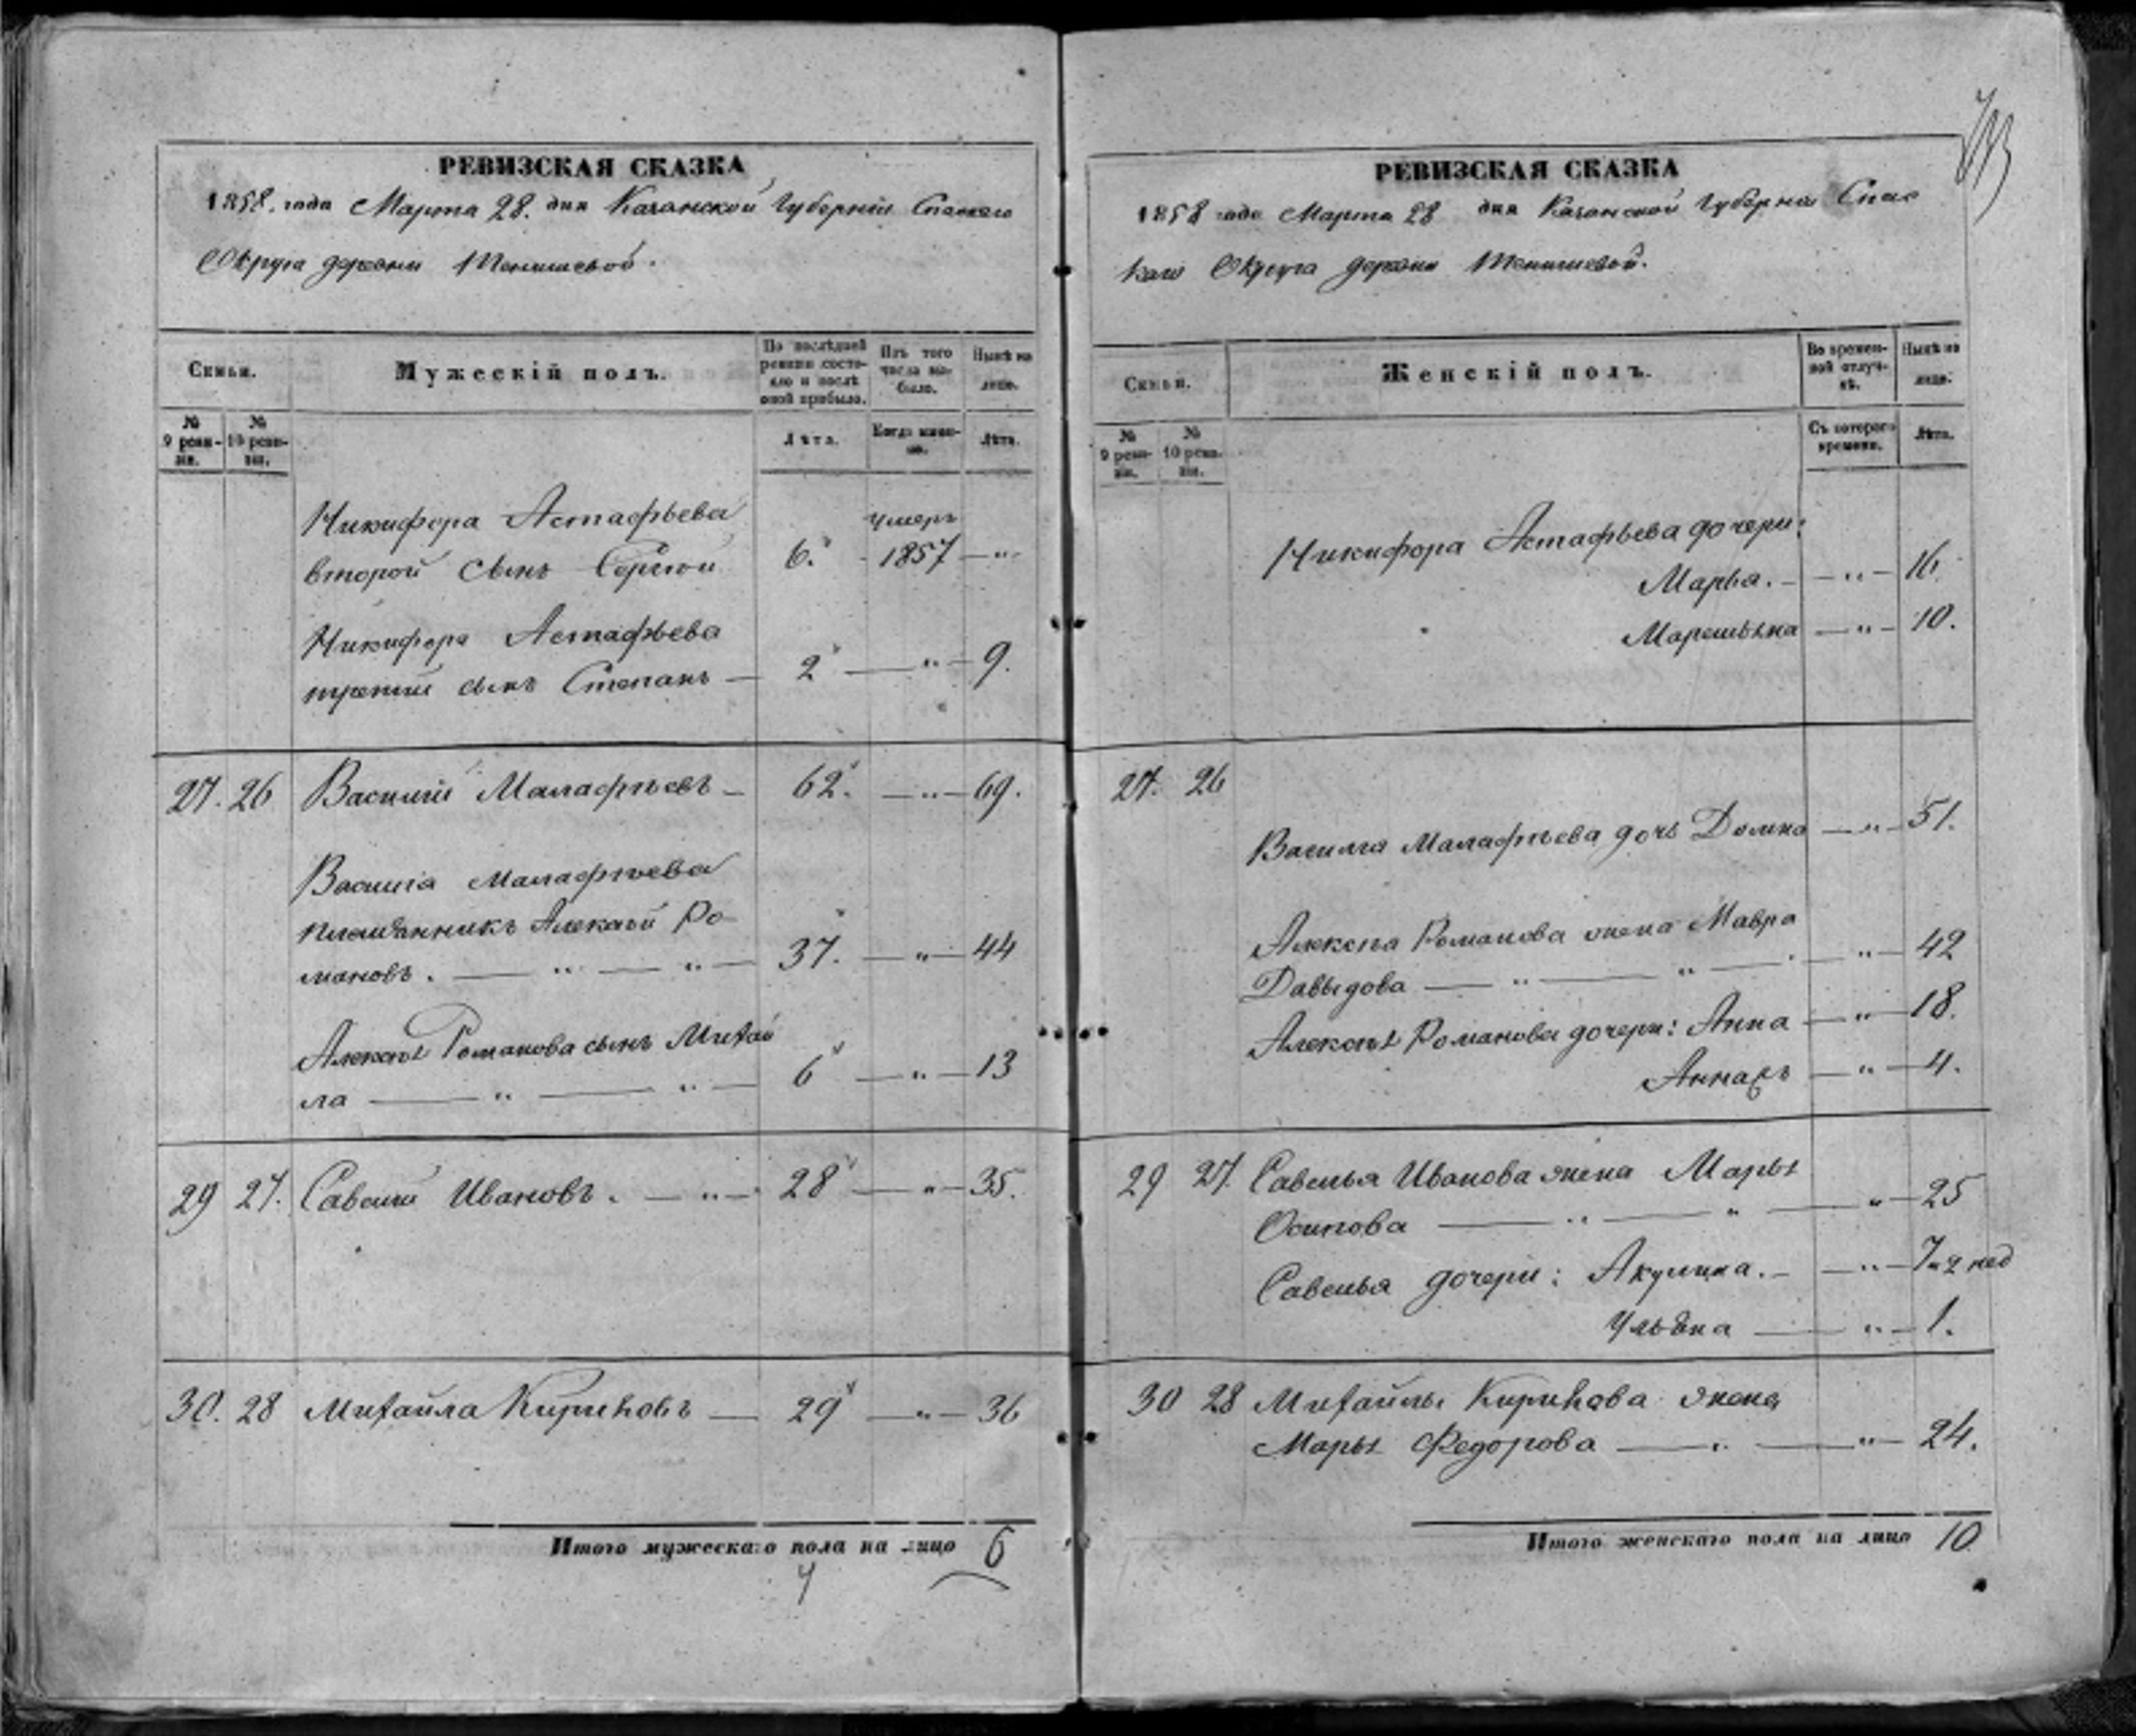 РЕВИЗСКАЯ СКАЗКА
1858. года Марта 28. дня Казанской Губернии Спаскаго
Округа деревни Тенишевой.
Семьи.
Мужескій полъ.
По послѣдней ревизіи состояло и послѣ оной прибыло.
Изъ того числа выбыло.
Нынѣ на лицо.
№ 9 ревизіи.
№ 10 ревизіи.
Лѣта.
Когда именно.
Лѣта.
Никифора Астафьева умеръ
второй сынъ Сергѣй 6. 1857 — "
Никифора Астафьева
третій сынъ Степанъ — 2 — " — 9.
27. 26 Василій Малафѣевъ — 62. — " — 69.
Василія Малафѣева
племянникъ Алексѣй Ро-
мановъ. — " — " — 37. — " — 44
Алексѣя Романова сынъ Михай
ла — " — " — 6 — " — 13
29 27. Савелій Ивановъ. — " — 28 — " — 35.
30. 28 Михайла Кириковъ — 29 — " — 36
Итого мужескаго пола на лицо 6
7
РЕВИЗСКАЯ СКАЗКА
1858 года Марта 28 дня Казанской Губерніи Спас
каго Округа деревни Тенишевой.
Семьи.
Женскій полъ.
Во временной отлучкѣ.
Нынѣ на лицо.
№ 9 ревизіи.
№ 10 ревизіи.
Съ котораго времени.
Лѣта.
Никифора Астафьева дочери:
Марья. — " — 16.
— " — 10.
27. 26
Василія Малафѣева дочь Домна — " — 51.
Алексѣя Романова жена Мавра
Давыдова — " — " — " — 42
Алексѣя Романова дочери: Анна — " — 18.
— " — 4.
29 27. Савелья Иванова жена Марья
Осипова — " — " — " — 25
Савелья дочери: Акулина. — " — нед
Ульяна — " — 1.
30 28 Михайлы Кирикова жена
Марья Федорова — " — " — 24.
Итого женскаго пола на лицо 10